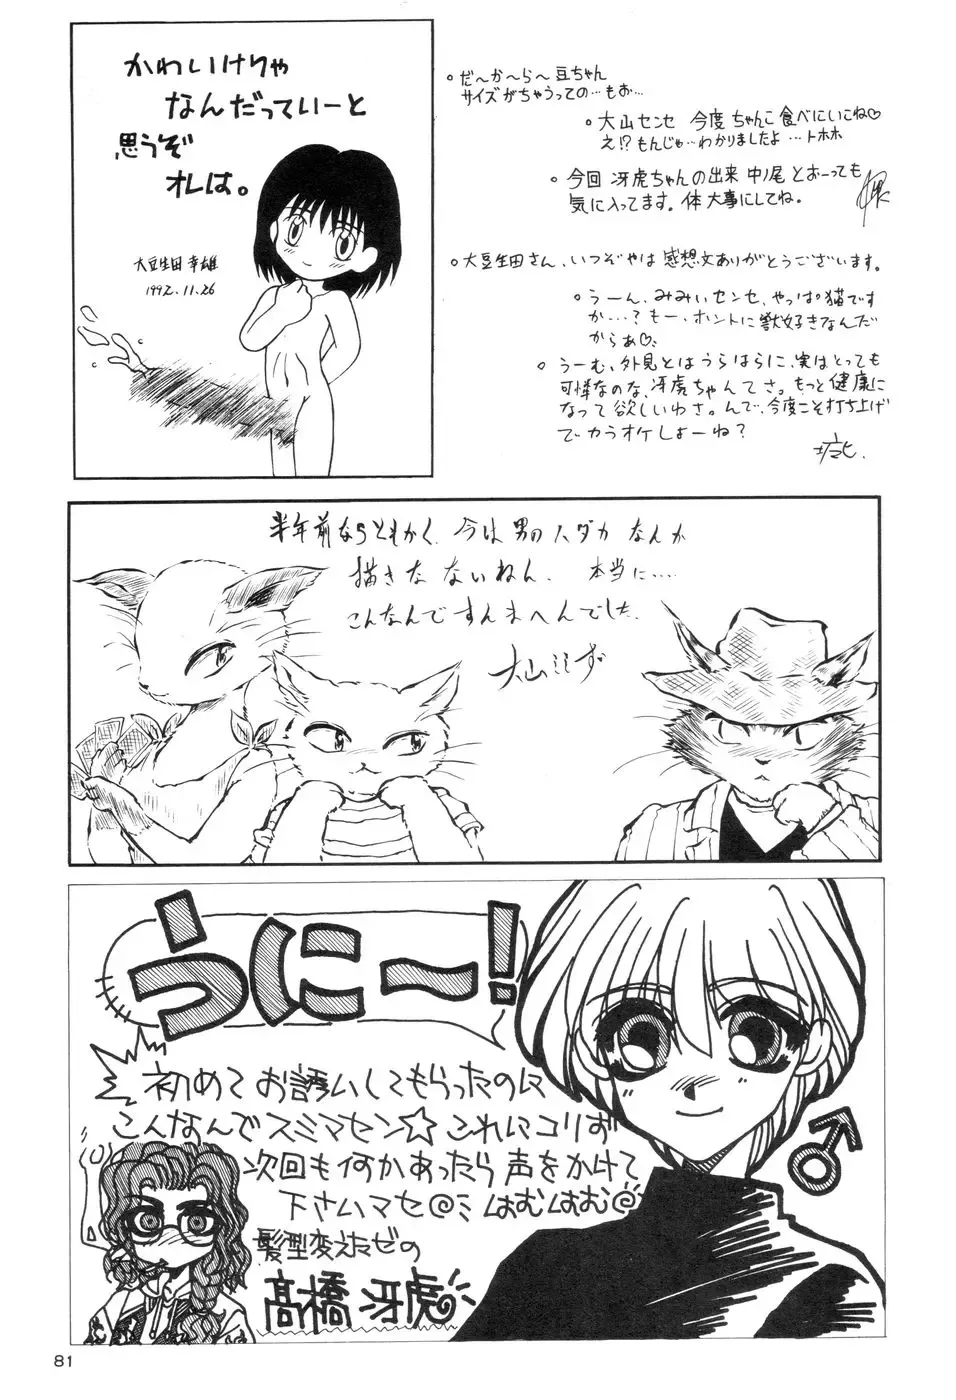 かわいけりゃ
なんだっていーと
思うぞ
オレは。
大豆生田 幸雄
1992.11.26
。だ〜か〜ら〜豆ちゃん
サイズがちゃうっての…もお…
。大山センセ 今度 ちゃんこ 食べにいこね♡
え!?もんじゃ…わかりましたよ …トホホ
。今回 冴虎ちゃんの出来 中ノ尾 とおーっても
気に入ってます。体大事にしてね。
。大豆生田さん、いつぞやは 感想文ありがとうございます。
。うーん、みみぃセンセ、やっぱ猫です
か…?もー、ホントに獣好きなんだ
からぁ♡
。うーむ、外見とはうらはらに、実はとっても
可憐なのな、冴虎ちゃんてさ。もっと健康に
なって欲しいわさ。んで、今度こそ打ち上げ
でカラオケしよーね?
半年前ならともかく、今は男のハダカ なんか
描きたないねん. 本当に....
こんなんですんまへんでした.
大山みみず
うに〜!
初めてお誘いしてもらったのに
こんなんでスミマセン☆これにコリず
次回も何かあったら声をかけて
下さいマセ@ミはむはむ@
髪型変えたゼの
高橋 冴虎
♂
81